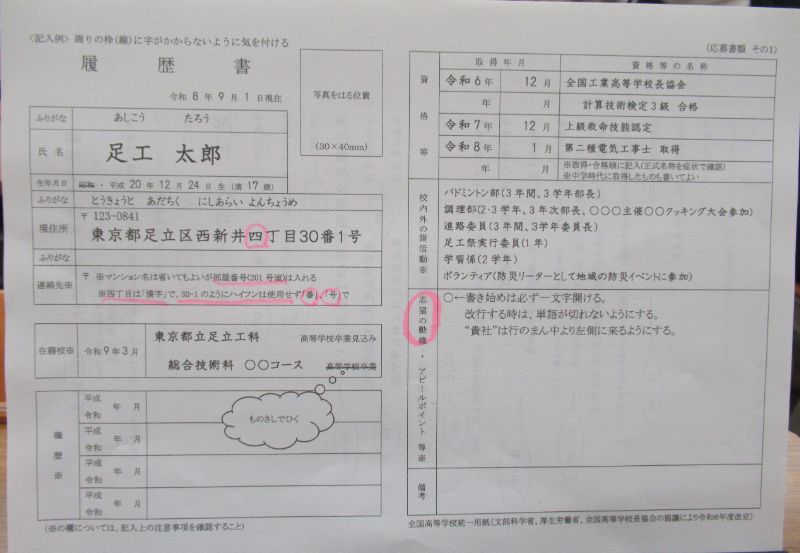 〈記入例〉周りの枠(線)に字がかからないように気を付ける
履歴書
令和 8 年 9 月 1 日現在
写真をはる位置
(30×40mm)
ふりがな あしこう たろう
氏名 足工 太郎
生年月日 昭和・平成 20 年 12 月 24 日生 (満 17 歳)
ふりがな とうきょうと あだちく にしあらい よんちょうめ
現住所 〒123-0841
東京都足立区西新井四丁目30番1号
ふりがな
連絡先※ 〒 ※マンション名は省いてもよいが部屋番号(201号室)は入れる
※四丁目は「漢字」で、30-1のようにハイフンは使用せず「番」、「号」で
在籍校※ 令和 9 年 3 月 東京都立足立工科 高等学校卒業見込み
総合技術科 〇〇コース 高等学校卒業
職歴※
平成 令和 年 月
ものさしでひく
平成 令和 年 月
平成 令和 年 月
平成 令和 年 月
(※の欄については、記入上の注意事項を確認すること)
(応募書類 その1)
資格等 取得年月 資格等の名称
令和6年 12月 全国工業高等学校長協会
年 月 計算技術検定3級 合格
令和7年 12月 上級救命技能認定
令和8年 1月 第二種電気工事士 取得
年 月 ※取得・合格順に記入(正式名称を症状で確認)
※中学時代に取得したものも書いてよい
校内外の諸活動※
バドミントン部(3年間、3学年部長)
調理部(2・3学年、3年次部長、〇〇〇主催〇〇クッキング大会参加)
進路委員(3年間、3学年委員長)
足工祭実行委員(1年)
学習係(2学年)
ボランティア(防災リーターとして地域の防災イベントに参加)
志望の動機・アピールポイント等※
〇←書き始めは必ず一文字開ける。
改行する時は、単語が切れないようにする。
“貴社”は行のまん中より左側に来るようにする。
備考
全国高等学校統一用紙(文部科学省、厚生労働省、全国高等学校長協会の協議により令和6年度改定)